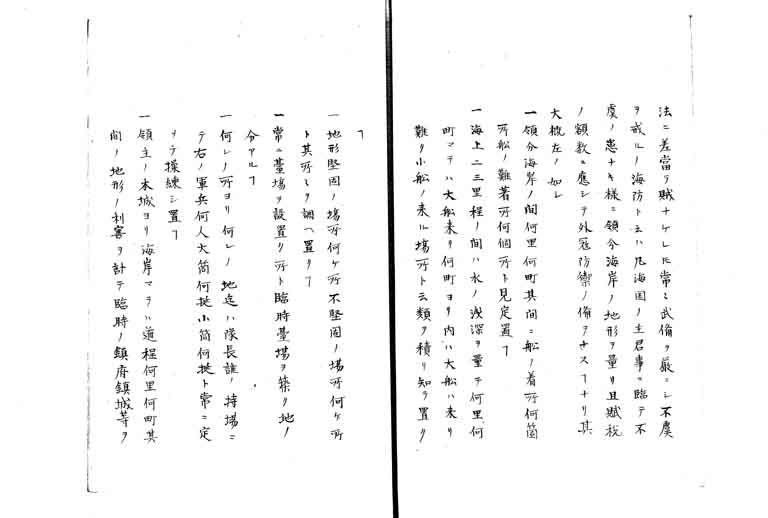 法ニ差當ヲ賊ナケレ𪜈常ニ武備ヲ嚴ニシ不虞
ヲ戒ルノ海防ト云ハ凡海国ノ主君事ニ臨テ不
虞ノ患ナキ様ニ領分海岸ノ地形ヲ量リ且賦税
ノ額数ニ應シテ外冦防禦ノ備ヲナスヿナリ其
大概左ノ如シ
一領分海岸ノ間何里何町其間ニ船ノ着所何箇
所船ノ難着所何個所ト見定置ヿ
一海上二三里程ノ間ハ水ノ浅深ヲ量テ何里何
町マテハ大船来リ何町ヨリ内ハ大船ハ来リ
難ク小船ノ来ル場所ト云類ヲ積リ知テ置ク
ヿ
一地形堅固ノ場所何ケ所不堅固ノ場所何ケ所
ト其所々ヲ調ヘ置クヿ
一常ニ臺場ヲ設置ク所ト臨時臺場ヲ築ク地ノ
分アルヿ
一何レノ所ヨリ何レノ地迄ハ隊長誰ノ持場ニ
テ右ノ軍兵何人大筒何挺小筒何挺ト常ニ定
メテ操練シ置ヿ
一領主ノ本城ヨリ海岸マテハ道程何里何町其
間ノ地形ノ利害ヲ計テ臨時ノ鎮府鎮城等ヲ